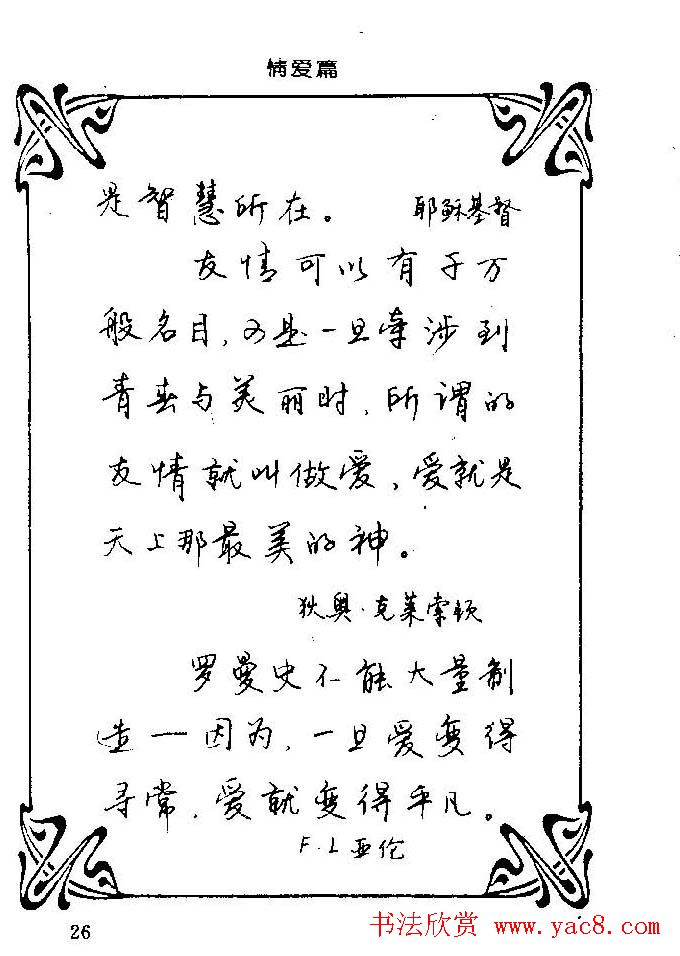 情爱篇
是智慧所在。 耶稣基督
友情可以有千万
般名目,可是一旦牵涉到
青春与美丽时,所谓的
友情就叫做爱,爱就是
天上那最美的神。
狄奥·克莱索顿
罗曼史不能大量制
造——因为,一旦爱变得
寻常,爱就变得平凡。
F·L亚伦
26
书法欣赏 www.yac8.com